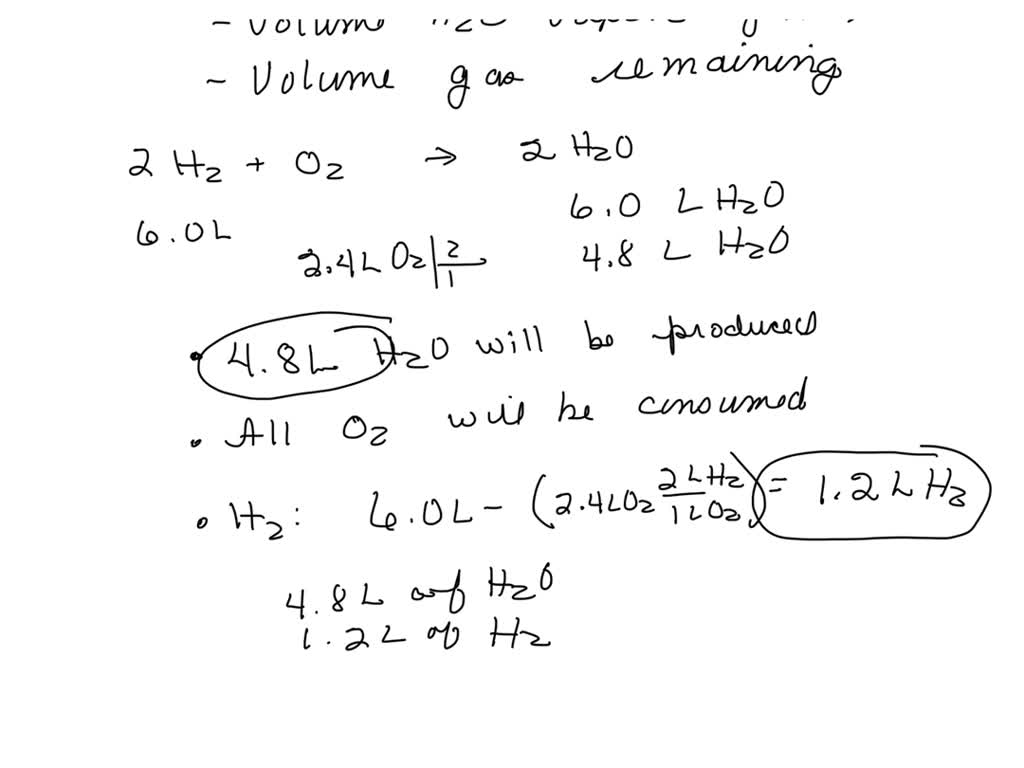 - Volume H2O
~ Volume gas remaining
2 H2 + O2 → 2 H2O
6.0 L H2O
6.0L
2.4L O2 | 2/1
4.8 L H2O
• 4.8L H2O will be produced
• All O2 will be consumed
• H2: 6.0L - (2.4LO2 2 LH2/1 LO2) = 1.2L H2
4.8L of H2O
1.2L of H2